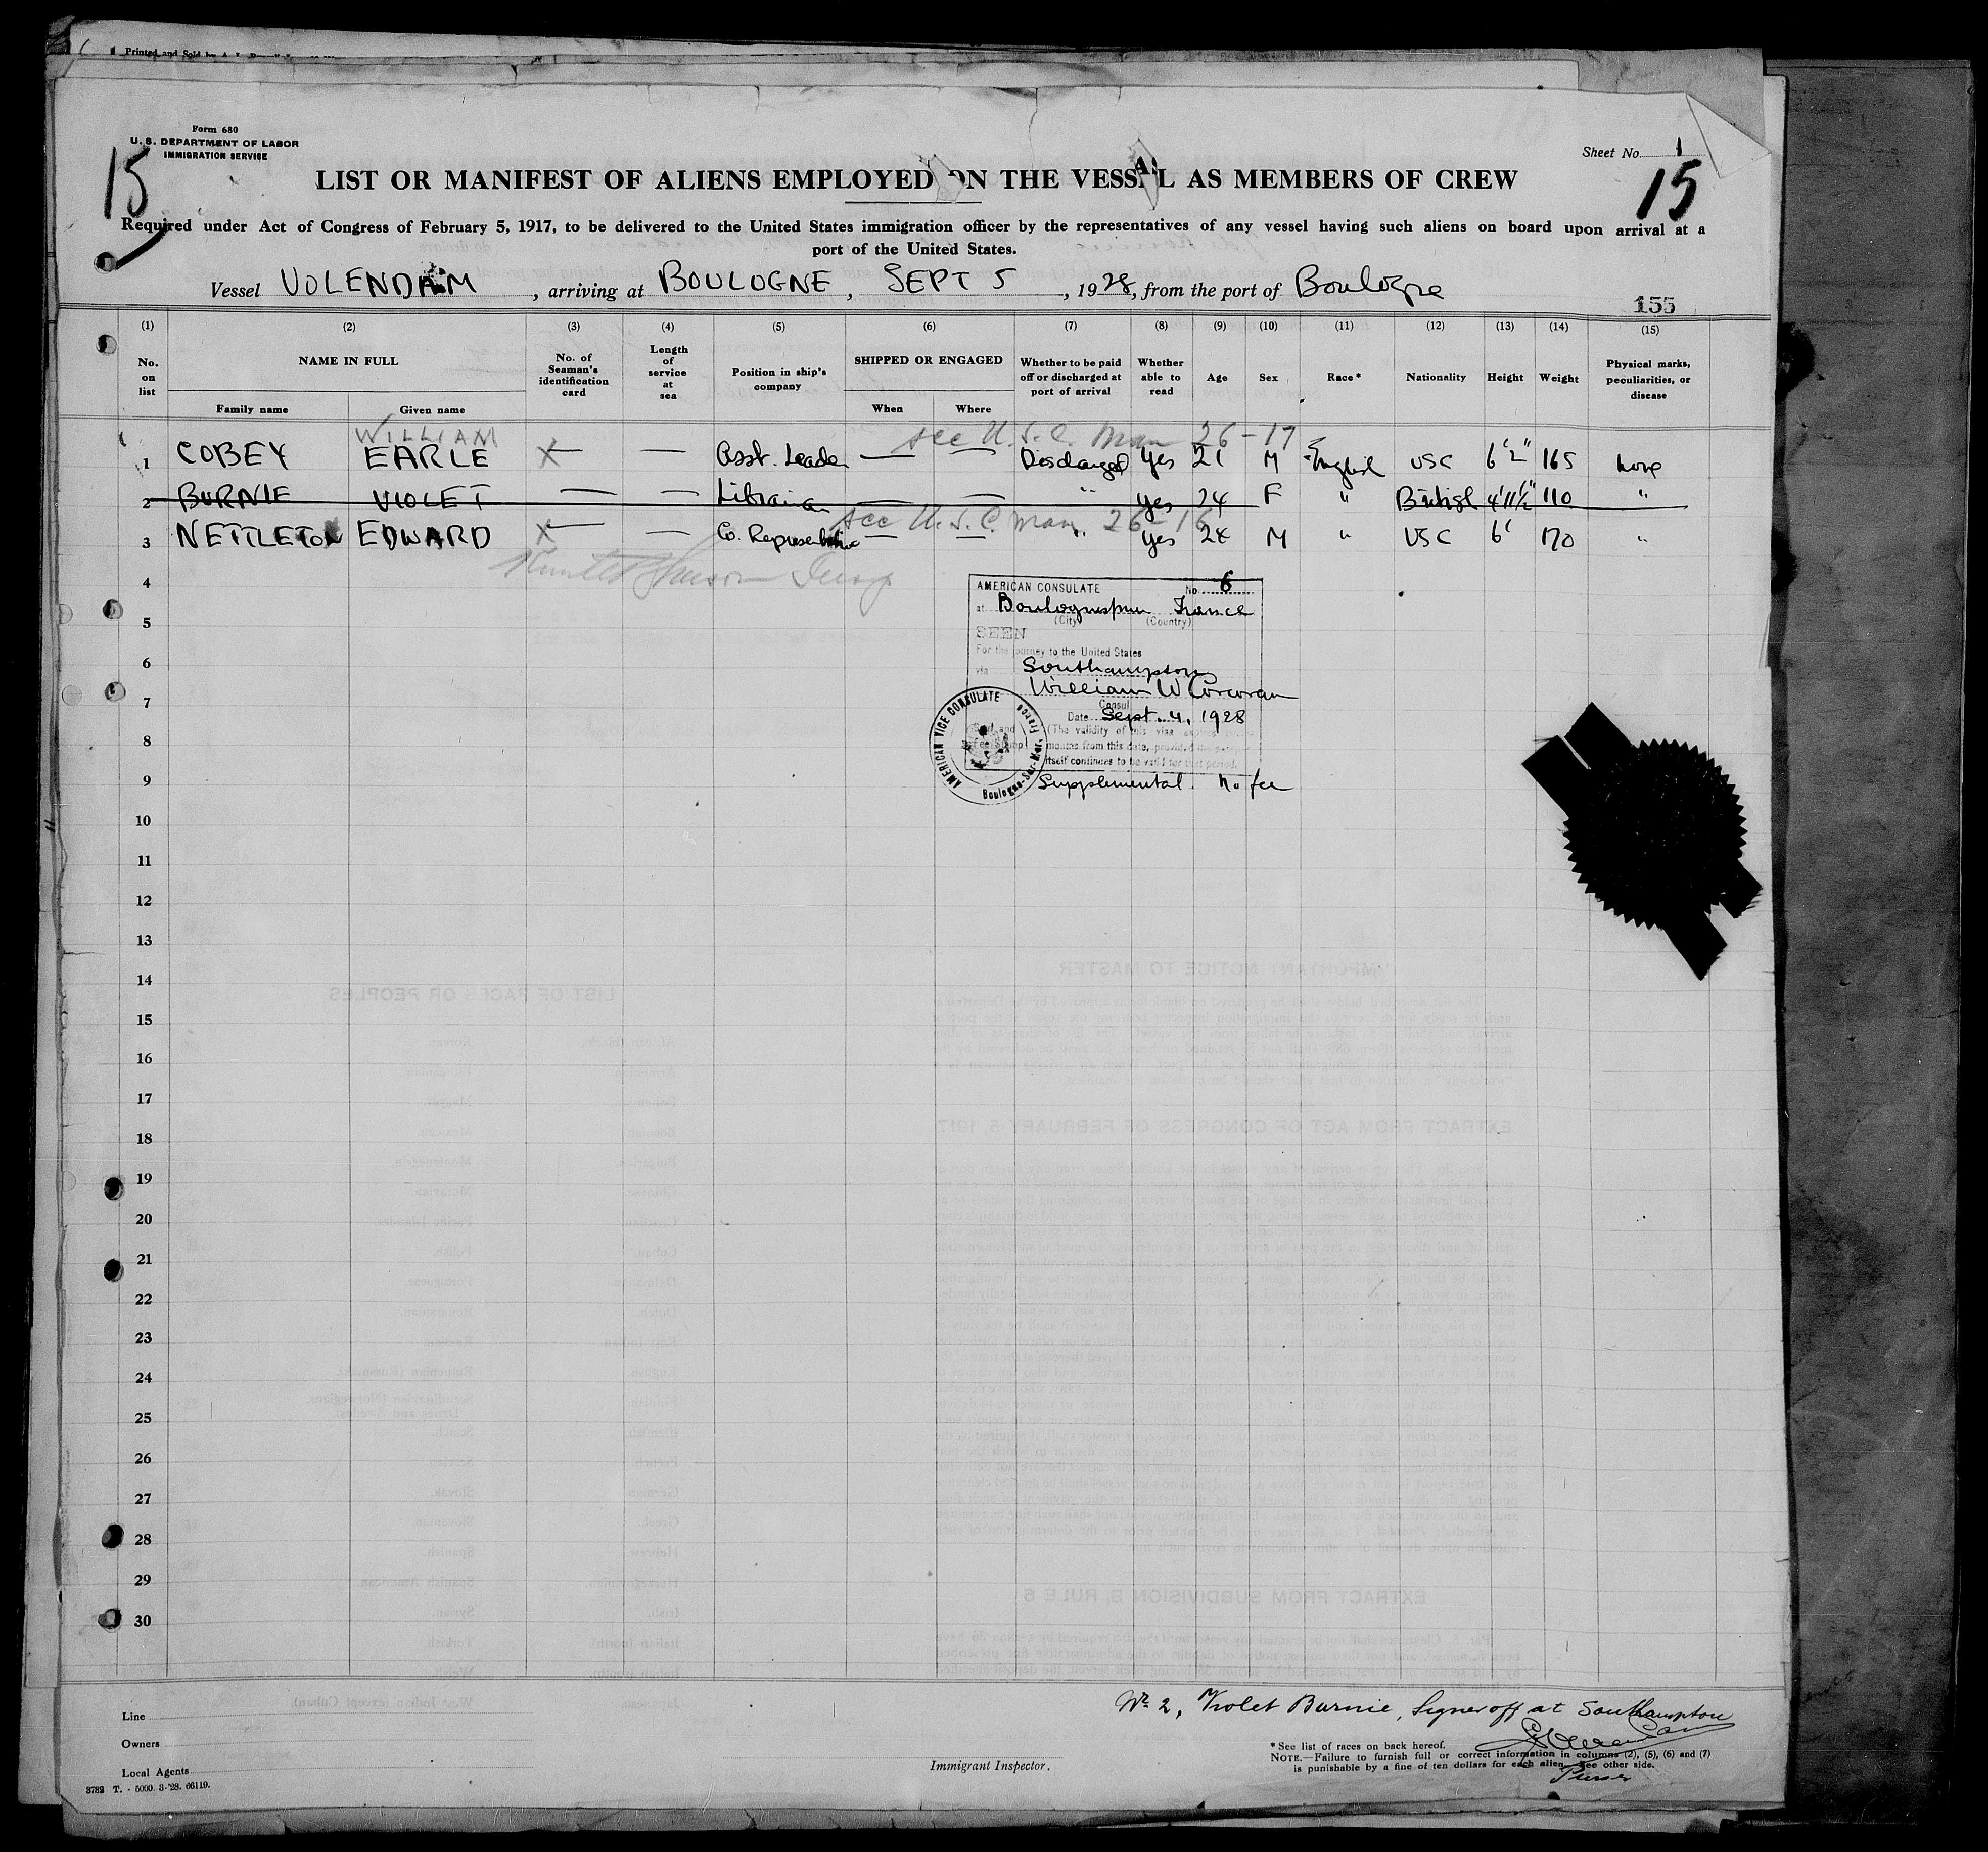 Printed and Sold by
Form 680
U. S. DEPARTMENT OF LABOR
IMMIGRATION SERVICE
Sheet No. 1
15
15
LIST OR MANIFEST OF ALIENS EMPLOYED ON THE VESSEL AS MEMBERS OF CREW
Required under Act of Congress of February 5, 1917, to be delivered to the United States immigration officer by the representatives of any vessel having such aliens on board upon arrival at a
port of the United States.
Vessel VOLENDAM, arriving at BOULOGNE, SEPT 5, 1928, from the port of Boulogne
155
(1) (2) (3) (4) (5) (6) (7) (8) (9) (10) (11) (12) (13) (14) (15)
No. on list NAME IN FULL Family name Given name No. of Seaman's identification card Length of service at sea Position in ship's company SHIPPED OR ENGAGED When Where Whether to be paid off or discharged at port of arrival Whether able to read Age Sex Race* Nationality Height Weight Physical marks, peculiarities, or disease
WILLIAM see U.S.C. Man 26-17
1 COBEY EARLE X — — Asst. Leader — — Discharged Yes 21 M English USC 6' 2" 165 None
2 BURNIE VIOLET — — Librarian — — " yes 24 F " British 4'11½" 110 "
see U.S.C. Man. 26-16
3 NETTLETON EDWARD X — — Co. Representative — — " yes 24 M " USC 6' 170 "
4
5
6
7
8
9
10
11
12
13
14
15
16
17
18
19
20
21
22
23
24
25
26
27
28
29
30
AMERICAN CONSULATE No. 6
at Boulogne France
(City) (Country)
SEEN
For the journey to the United States
via Southampton
William W Corcoran
Consul
Date Sept. 4, 1928
(The validity of this visa expires
months from this date, provided the
itself continues to be valid for that period.
AMERICAN VICE CONSULATE Boulogne-Sur-Mer, France
Supplemental. No fee
Line
Owners
Local Agents
3782 T. - 5000. 3-'28. 66119.
Immigrant Inspector.
No 2, Violet Burnie, Signed off at Southampton
*See list of races on back hereof.
NOTE.—Failure to furnish full or correct information in columns (2), (5), (6) and (7)
is punishable by a fine of ten dollars for each alien. See other side.
Purser